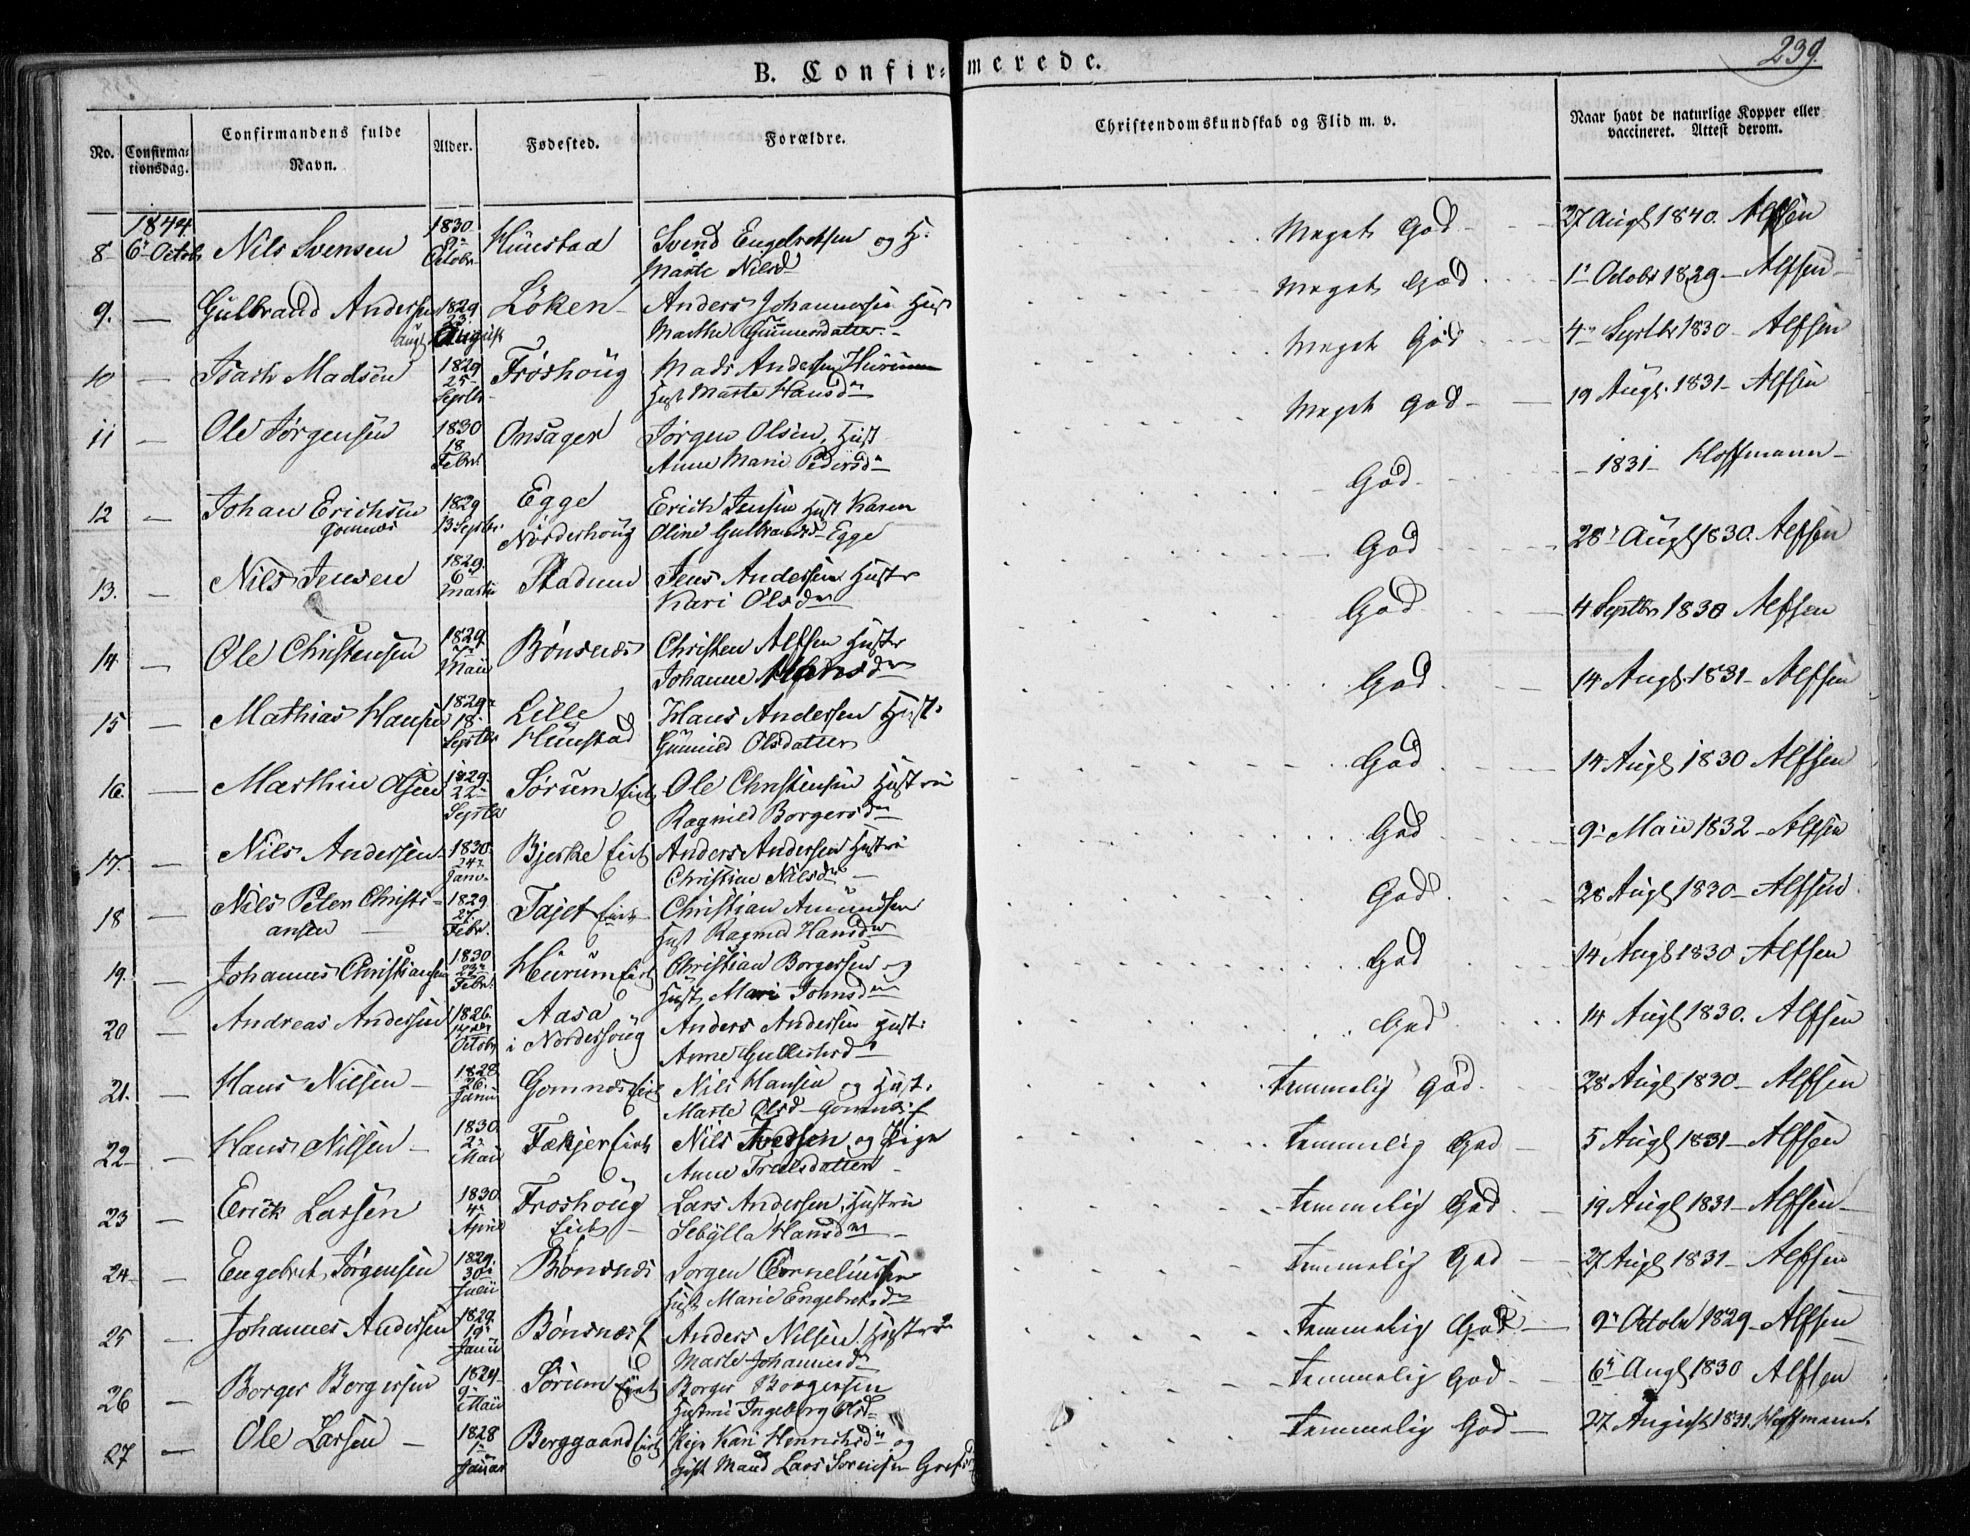 B. Confirmerede.
239.
No.
Confirma-
tionsdag.
Confirmandens fulde
Navn.
Alder.
Fødested.
Forældre.
Christendomskundskab og Flid m. v.
Naar havt de naturlige Kopper eller
vaccineret. Attest derom.
1844
8 6te Octob Nils Svensen 1830 Octobr Hünstad Svend Engebretsen og H. Marte Nilsd Meget God 27 Augl 1840. Alfsen
9. — Gulbrand Andersen 1829 23 August Løken Anders Johannesen Hust Marthe Gunnersdatter Meget God 1' Octobr 1829 – Alfsen
10 — Isach Madsen 1829 25 Septbr Frøshoug Mads Andersen Hurum Hust Marte Hansd Meget God 4 Septbr 1830 – Alfsen
11 — Ole Jørgensen 1830 18 Febr. Onsager Jørgen Olsen, Hust Anne Marie Pedersd Meget God 19 Augl. 1831 – Alfsen
12 — Johan Erichsen Gomnæs 1829 13 Septbr Egge Nørderhoug Erich Jensen Hust Karen Oline Gulbransd Egge God – 1831 – Hoffmann –
13. — Nils Jensen 1829. 6 Martii Stadum Jens Andersen Hustr Kari Olsd God 28' Augl 1830. Alfsen
14 — Ole Christensen 1829 7 Maii Bønsnæs Christen Alfsen Hustr Johanne God 4 Septbr 1830 Alfsen
15 — Mathias Hansen 1829 18 Septbr Lille Hünstad Hans Andersen Hust. Gunnild Olsdatter God 14 Augl. 1831 – Alfsen
16. — Marthin Olsen 1829. 22 Septbr Sørum Eie Ole Christensen Hustru Ragnild Borgersd God 14 Augl 1830 Alfsen
17. — Nils Andersen 1830. 24 Janv. Bjerke Eiet Anders Andersen Hustru Christine Nilsd God 9' Maii 1832 – Alfsen
18 — Nils Peter Christi-
ansen 1829 27 Febr. Fajet Eiet Christian Amundsen Hust Ragnild Hansd God 28 Augl 1830 – Alfsen
19. — Johannes Christiansen 1830 23 Febr. Hurum Eiet Christian Borgersen og Hust Mari Johnsd God 14 Augl 1830 Alfsen
20 — Andreas Andersen 1826. 14 Octobr Aasa i Norderhoug Anders Andersen Hust. Anne Gulliksd God 14 Augl 1830. Alfsen
21. — Hans Nilsen — 1828 26. Junii Gomnæs Eiet Nils Hansen og Hust. Marte Olsd – Gomnæs Temmelig God 28 Augl 1830 – Alfsen
22 — Hans Nilsen — 1830. 2 Maii Fækjer Eiet Nils Iversen og Pige Anne Trulsdatter Temmelig God 5 Augl 1831 – Alfsen
23 — Erick Larsen 1830. 4 April Froshoug Eiet Lars Andersen, Hustru Sebylla Hansd Temmelig God 19 Augl 1831 – Alfsen –
24 — Engebret Jørgensen 1829. 30 Julii Bønsnæs Jorgen Corneliussen Hust Marie Engebretsd Temmelig God 27 Augl 1831 – Alfsen
25 — Johannes Andersen 1829. 19 Junii Bønsnæs Anders Nilsen. Hustru Marte Johannesd Temmelig God 9 Octobr 1829 – Alfsen
26 — Borger Borgersen 1824 9 Maii Sørum Eiet Borger Borgersen Hustru Ingeborg Olsd Temmelig God 6' Augl 1830 Alfsen
27 — Ole Larsen — 1828 1 Januar Berggaard Eiet Pige Kari Henriksd og Gift Mand Lars Sorensen Temmelig God 27 August 1831. Hoffmann.